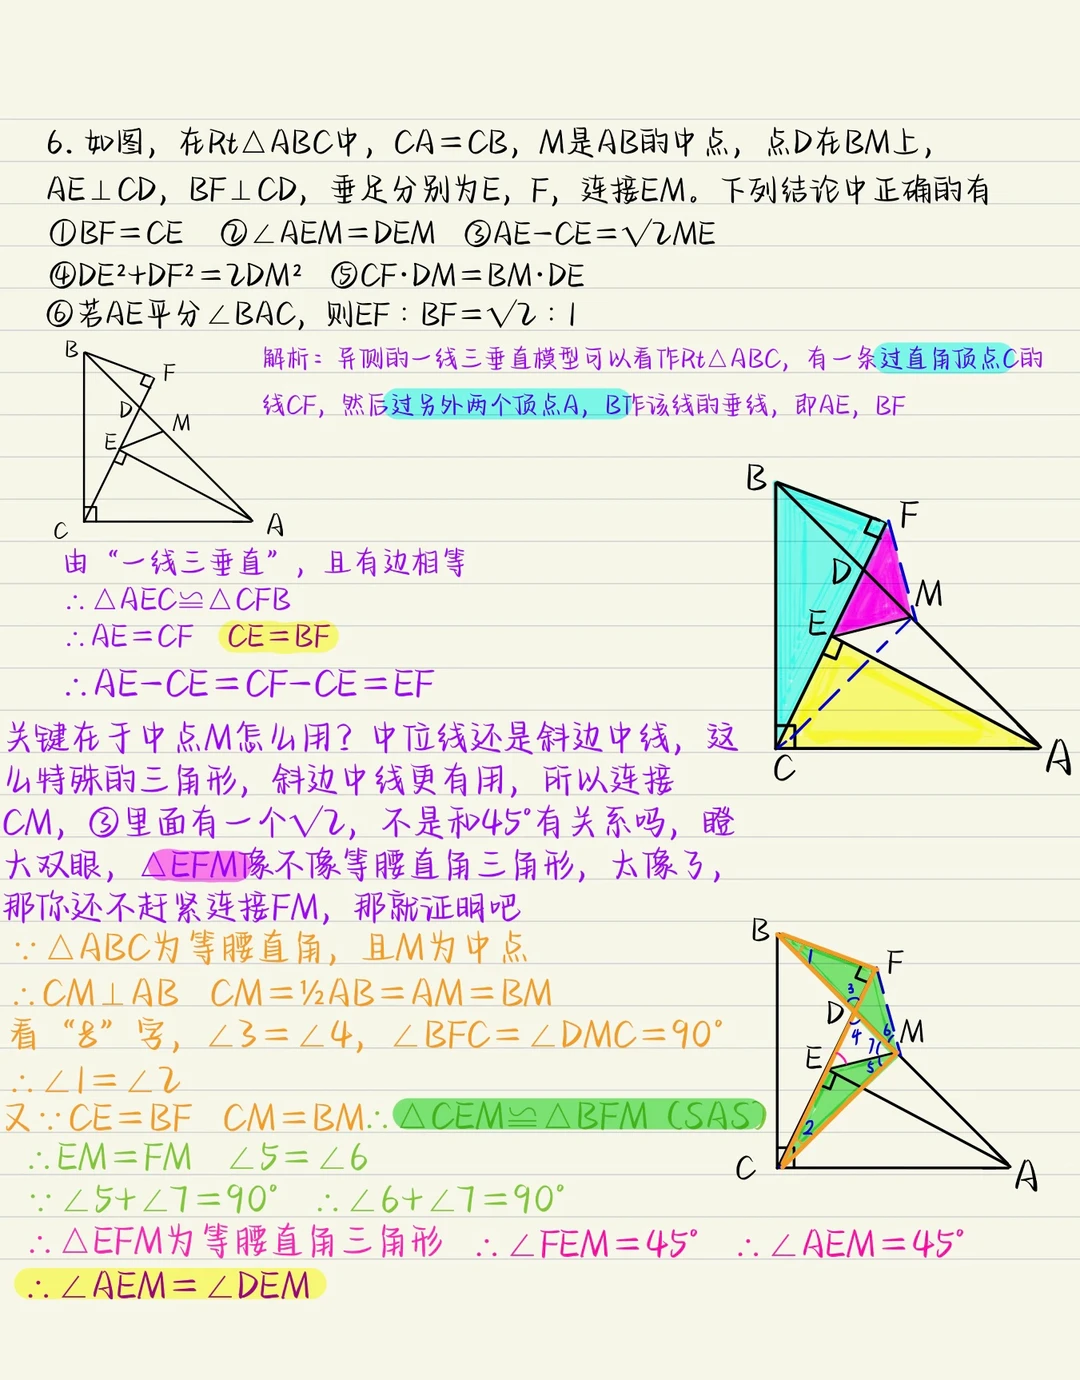 6. 如图，在Rt△ABC中，CA=CB，M是AB的中点，点D在BM上，
AE⊥CD，BF⊥CD，垂足分别为E，F，连接EM。下列结论中正确的有
①BF=CE ②∠AEM=DEM ③AE-CE=√2ME
④DE²+DF²=2DM² ⑤CF·DM=BM·DE
⑥若AE平分∠BAC，则EF：BF=√2：1
解析：异侧的一线三垂直模型可以看作Rt△ABC，有一条过直角顶点C的
线CF，然后过另外两个顶点A，B作该线的垂线，即AE，BF
B
F
D
M
E
C
A
由“一线三垂直”，且有边相等
∴△AEC≌△CFB
∴AE=CF CE=BF
∴AE-CE=CF-CE=EF
B
F
D
M
E
C
A
关键在于中点M怎么用？中位线还是斜边中线，这
么特殊的三角形，斜边中线更有用，所以连接
CM，③里面有一个√2，不是和45°有关系吗，瞪
大双眼，△EFM像不像等腰直角三角形，太像了，
那你还不赶紧连接FM，那就证明吧
∵△ABC为等腰直角，且M为中点
∴CM⊥AB CM=½AB=AM=BM
看“8”字，∠3=∠4，∠BFC=∠DMC=90°
∴∠1=∠2
又∵CE=BF CM=BM∴△CEM≌△BFM（SAS）
∴EM=FM ∠5=∠6
∵∠5+∠7=90° ∴∠6+∠7=90°
∴△EFM为等腰直角三角形 ∴∠FEM=45° ∴∠AEM=45°
∴∠AEM=∠DEM
B
1
F
3
D
4
6
M
7
E
5
2
C
A